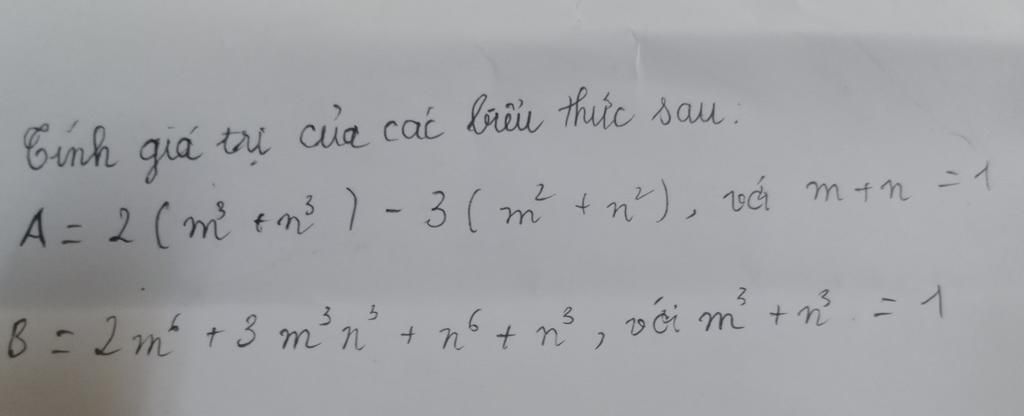 Tính giá trị của các biểu thức sau:
A = 2 ( m³ + n³ ) - 3 ( m² + n² ), với m + n = 1
B = 2m⁶ + 3 m³ n³ + n⁶ + n³, với m³ + n³ = 1